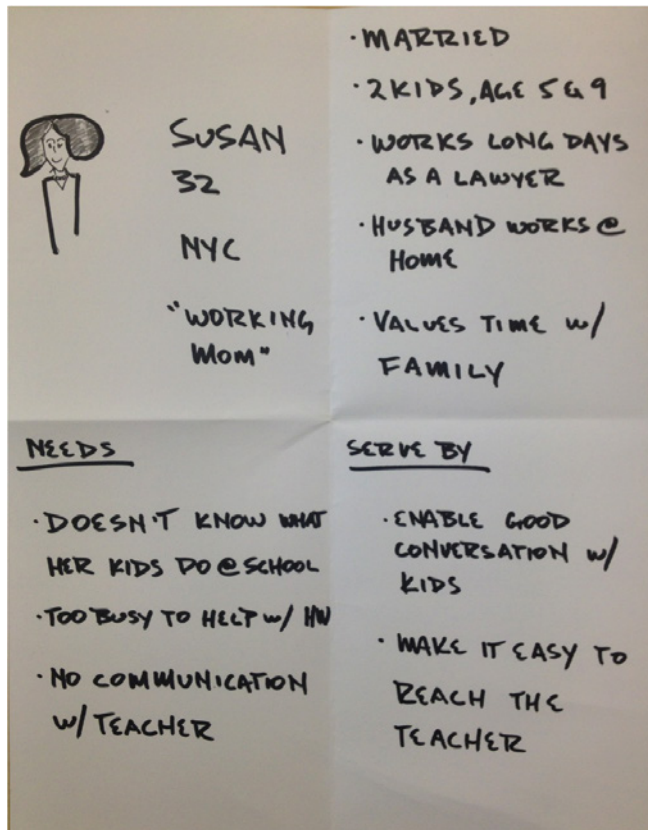 SUSAN
32
NYC
"WORKING
MOM"
·MARRIED
·2 KIDS, AGE 5 & 9
·WORKS LONG DAYS
AS A LAWYER
·HUSBAND WORKS @
HOME
·VALUES TIME W/
FAMILY
NEEDS
·DOESN'T KNOW WHAT
HER KIDS DO @ SCHOOL
·TOO BUSY TO HELP W/ HW
·NO COMMUNICATION
W/ TEACHER
SERVE BY
·ENABLE GOOD
CONVERSATION W/
KIDS
·MAKE IT EASY TO
REACH THE
TEACHER